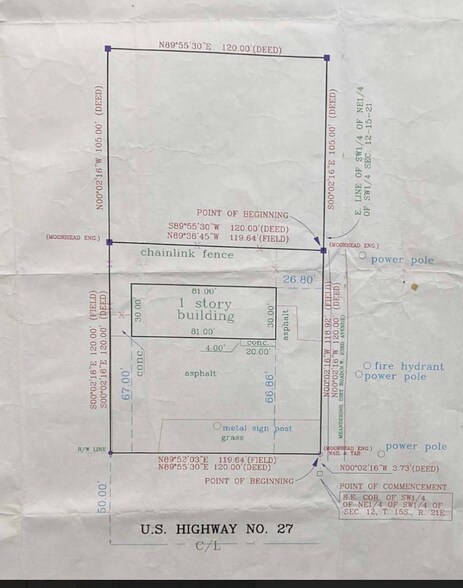 N89°55'30"E 120.00'(DEED)
N00°02'16"W 105.00' (DEED)
S00°02'16"E 105.00' (DEED)
E. LINE OF SW1/4 OF NE1/4
OF SW1/4 SEC. 12-15-21
POINT OF BEGINNING
S89°55'30"W 120.00'(DEED)
N89°36'45"W 119.64'(FIELD)
(MOORHEAD ENG.)
(MOORHEAD ENG.)
chainlink fence
power pole
26.80'
81.00'
1 story
building
30.00'
30.00'
81.00'
asphalt
conc.
4.00'
20.00'
conc.
asphalt
67.00'
66.86'
S00°02'16"E 120.00' (FIELD)
S00°02'16"E 120.00' (DEED)
N00°02'16"W 118.92' (FIELD)
N00°02'16"W 120.00' (DEED)
MEANDERING DIRT ROAD
fire hydrant
power pole
metal sign post
grass
power pole
R/W LINE
(MOORHEAD ENG.)
NAIL & TAB
N89°52'03"E 119.64'(FIELD)
N89°55'30"E 120.00'(DEED)
N00°02'16"W 3.73'(DEED)
POINT OF BEGINNING
POINT OF COMMENCEMENT
S.E. COR. OF SW1/4
OF NE1/4 OF SW1/4 OF
SEC. 12, T. 15S., R. 21E
50.00'
U.S. HIGHWAY NO. 27
C/L